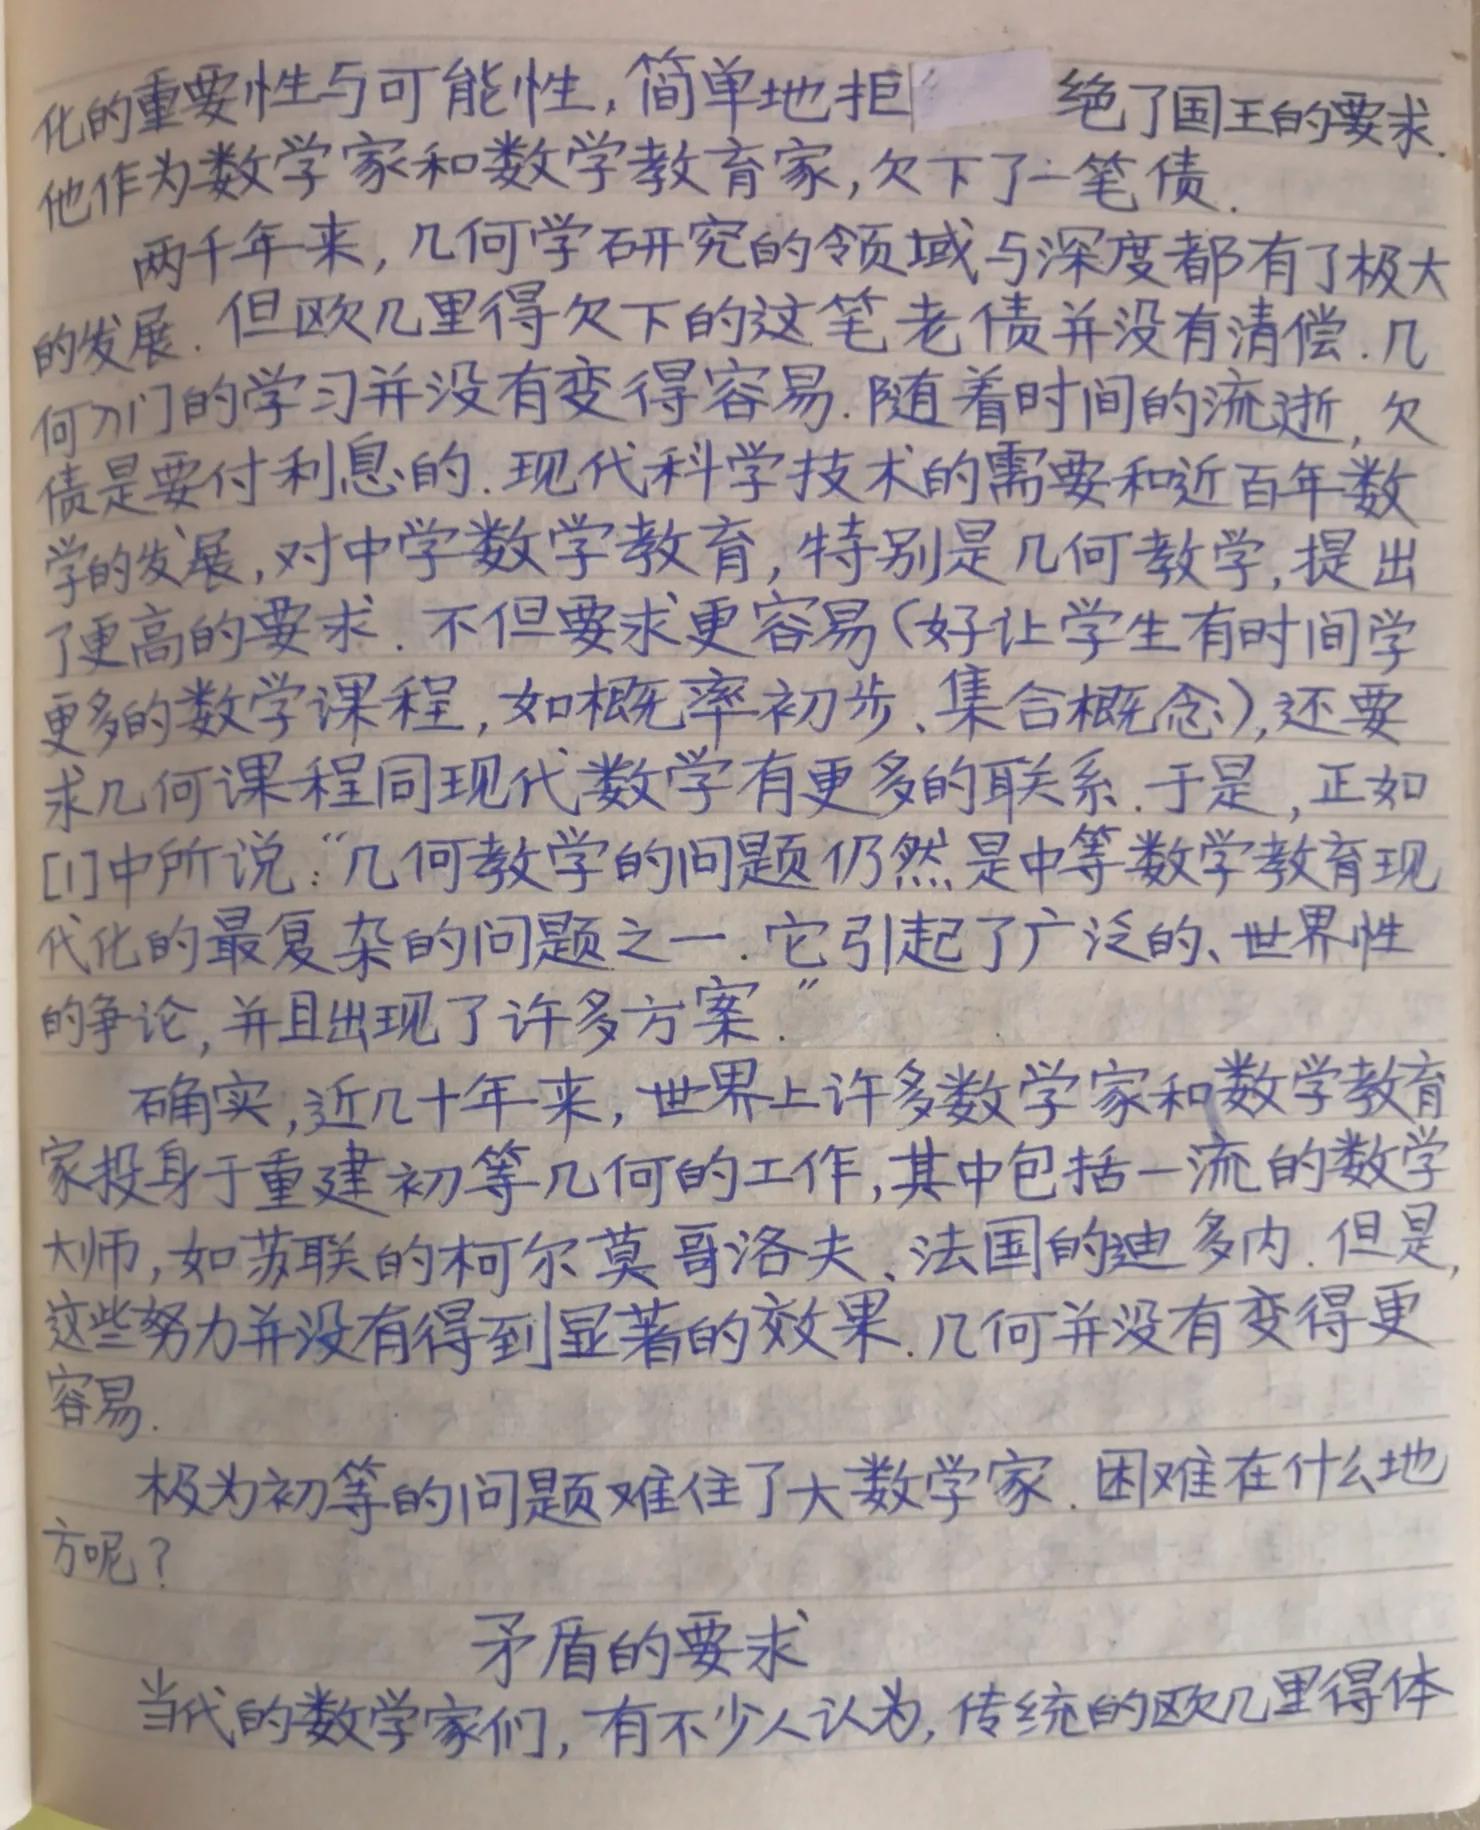 化的重要性与可能性,简单地拒绝了国王的要求.
他作为数学家和数学教育家,欠下了一笔债.
两千年来,几何学研究的领域与深度都有了极大
的发展.但欧几里得欠下的这笔老债并没有清偿.几
何入门的学习并没有变得容易.随着时间的流逝,欠
债是要付利息的.现代科学技术的需要和近百年数
学的发展,对中学数学教育,特别是几何教学,提出
了更高的要求.不但要求更容易(好让学生有时间学
更多的数学课程,如概率初步、集合概念),还要
求几何课程同现代数学有更多的联系.于是,正如
[1]中所说:“几何教学的问题仍然是中等数学教育现
代化的最复杂的问题之一.它引起了广泛的、世界性
的争论,并且出现了许多方案.”
确实,近几十年来,世界上许多数学家和数学教育
家投身于重建初等几何的工作,其中包括一流的数学
大师,如苏联的柯尔莫哥洛夫、法国的迪多内.但是,
这些努力并没有得到显著的效果.几何并没有变得更
容易.
极为初等的问题难住了大数学家.困难在什么地
方呢?
矛盾的要求
当代的数学家们,有不少人认为,传统的欧几里得体